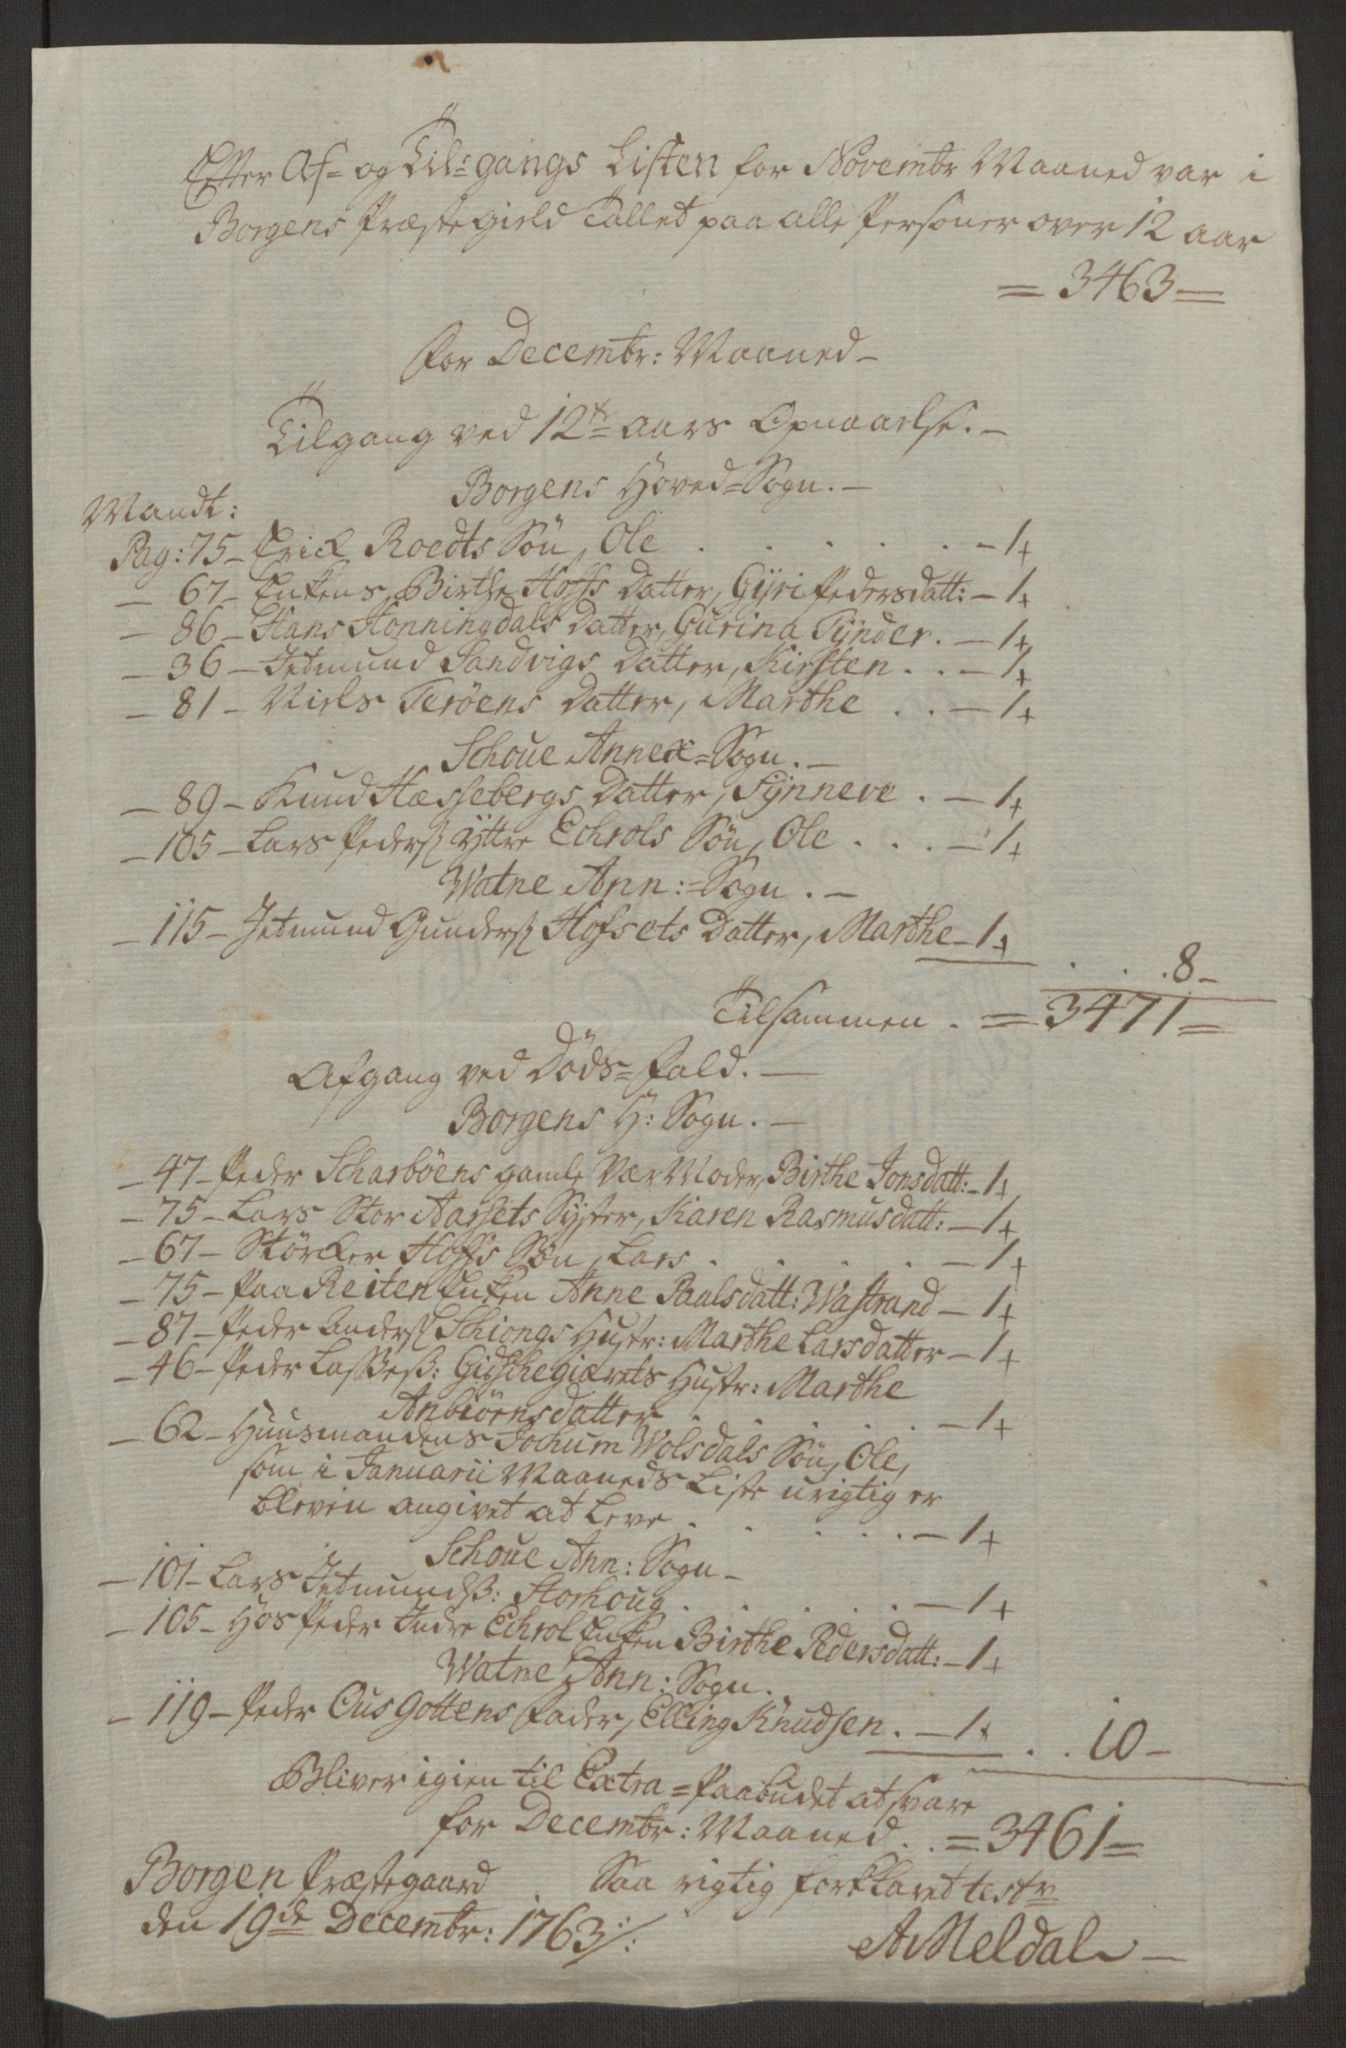 Efter Af= og Til=gangs Listen for Novembr Maaned var i
Borgens Præstegield Tallet paa alle Personer over 12 aar
= 3463 =
for Decembr: Maaned -
Tilgang ved 12te aars Opnaaelse. -
Borgens Hoved=Sogn. -
Mandt:
Pag: 75 - Erick Roedts Søn, Ole . . . . . - 1,
- 67 - Enkens, Birthe Hoffs Datter, Gÿri Pedersdatt: - 1,
- 86 - Hans Honningdals Datter, Gurina Tÿnder. - 1,
- 36 - Jetmund Sandvigs Datter, Kirsten . . - 1,
- 81 - Niels Terøens Datter, Marthe . . - 1,
Schoue Annex=Sogn. -
- 89 - Knud Hæssebergs Datter, Sÿnneve . - 1,
- 105 - Lars Peders: ÿttre Echrols Søn, Ole . . . - 1,
Watne Ann:=Sogn . -
- 115 - Jetmund Gunders: Hofsets Datter, Marthe - 1,
. . . 8 -
Tilsammen . = 3471 =
Afgang ved Døds=fald. -
Borgens H: Sogn. -
- 47 - Peder Scharbøens gamle Vær Moder, Birthe Jonsdatt: - 1,
- 75 - Lars Stor Aarsets Syster, Karen Rasmusdatt: - 1,
- 67 - Størcker Hoffs Søn, Lars . . . . - 1,
- 75 - Paa Reiten Enken Anne Paulsdatt: Wastrand - 1,
- 87 - Peder Anders: Schiongs Hustr: Marthe Larsdatter - 1,
- 46 - Peder Lasseß: Gidschegiærets Hustr: Marthe
Anbiørnsdatter . . . . - 1,
- 62 - Huusmandens Jochum Wolsdals Søn, Ole,
som i Januarii Maaneds Liste urigtig er
bleven angivet at Leve . . . . . - 1,
Schoue Ann: Sogn -
- 101 - Lars Jetmundß: Storhoug . . . . . - 1,
- 105 - Hos Peder Indre Echrol Enken Birthe Pedersdatt: - 1,
Watne Ann: Sogn.
- 119 - Peder Ousgottens Fader, Elling Knudsen . - 1,
. . 10 -
Bliver igien til Extra=Paabudet at svare
for Decembr: Maaned . . = 3461 =
Borgen Præstegaard . Saa rigtig forklaret test:
den 19de Decembr: 1763 ./.
A Meldal -